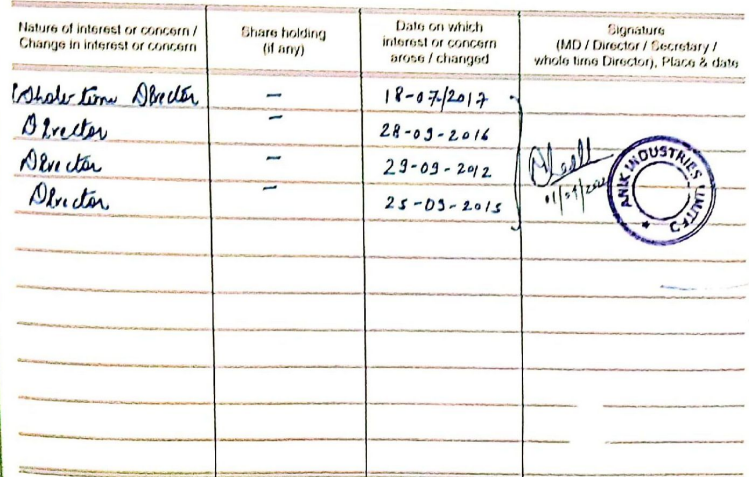 Nature of interest or concern / Change in interest or concern
Share holding (if any)
Date on which interest or concern arose / changed
Signature (MD / Director / Secretary / whole time Director), Place & date
Whole time Director - 18-07-2017
Director - 28-09-2016
Director - 29-09-2012
Director - 25-09-2015
ANIK INDUSTRIES LIMITED